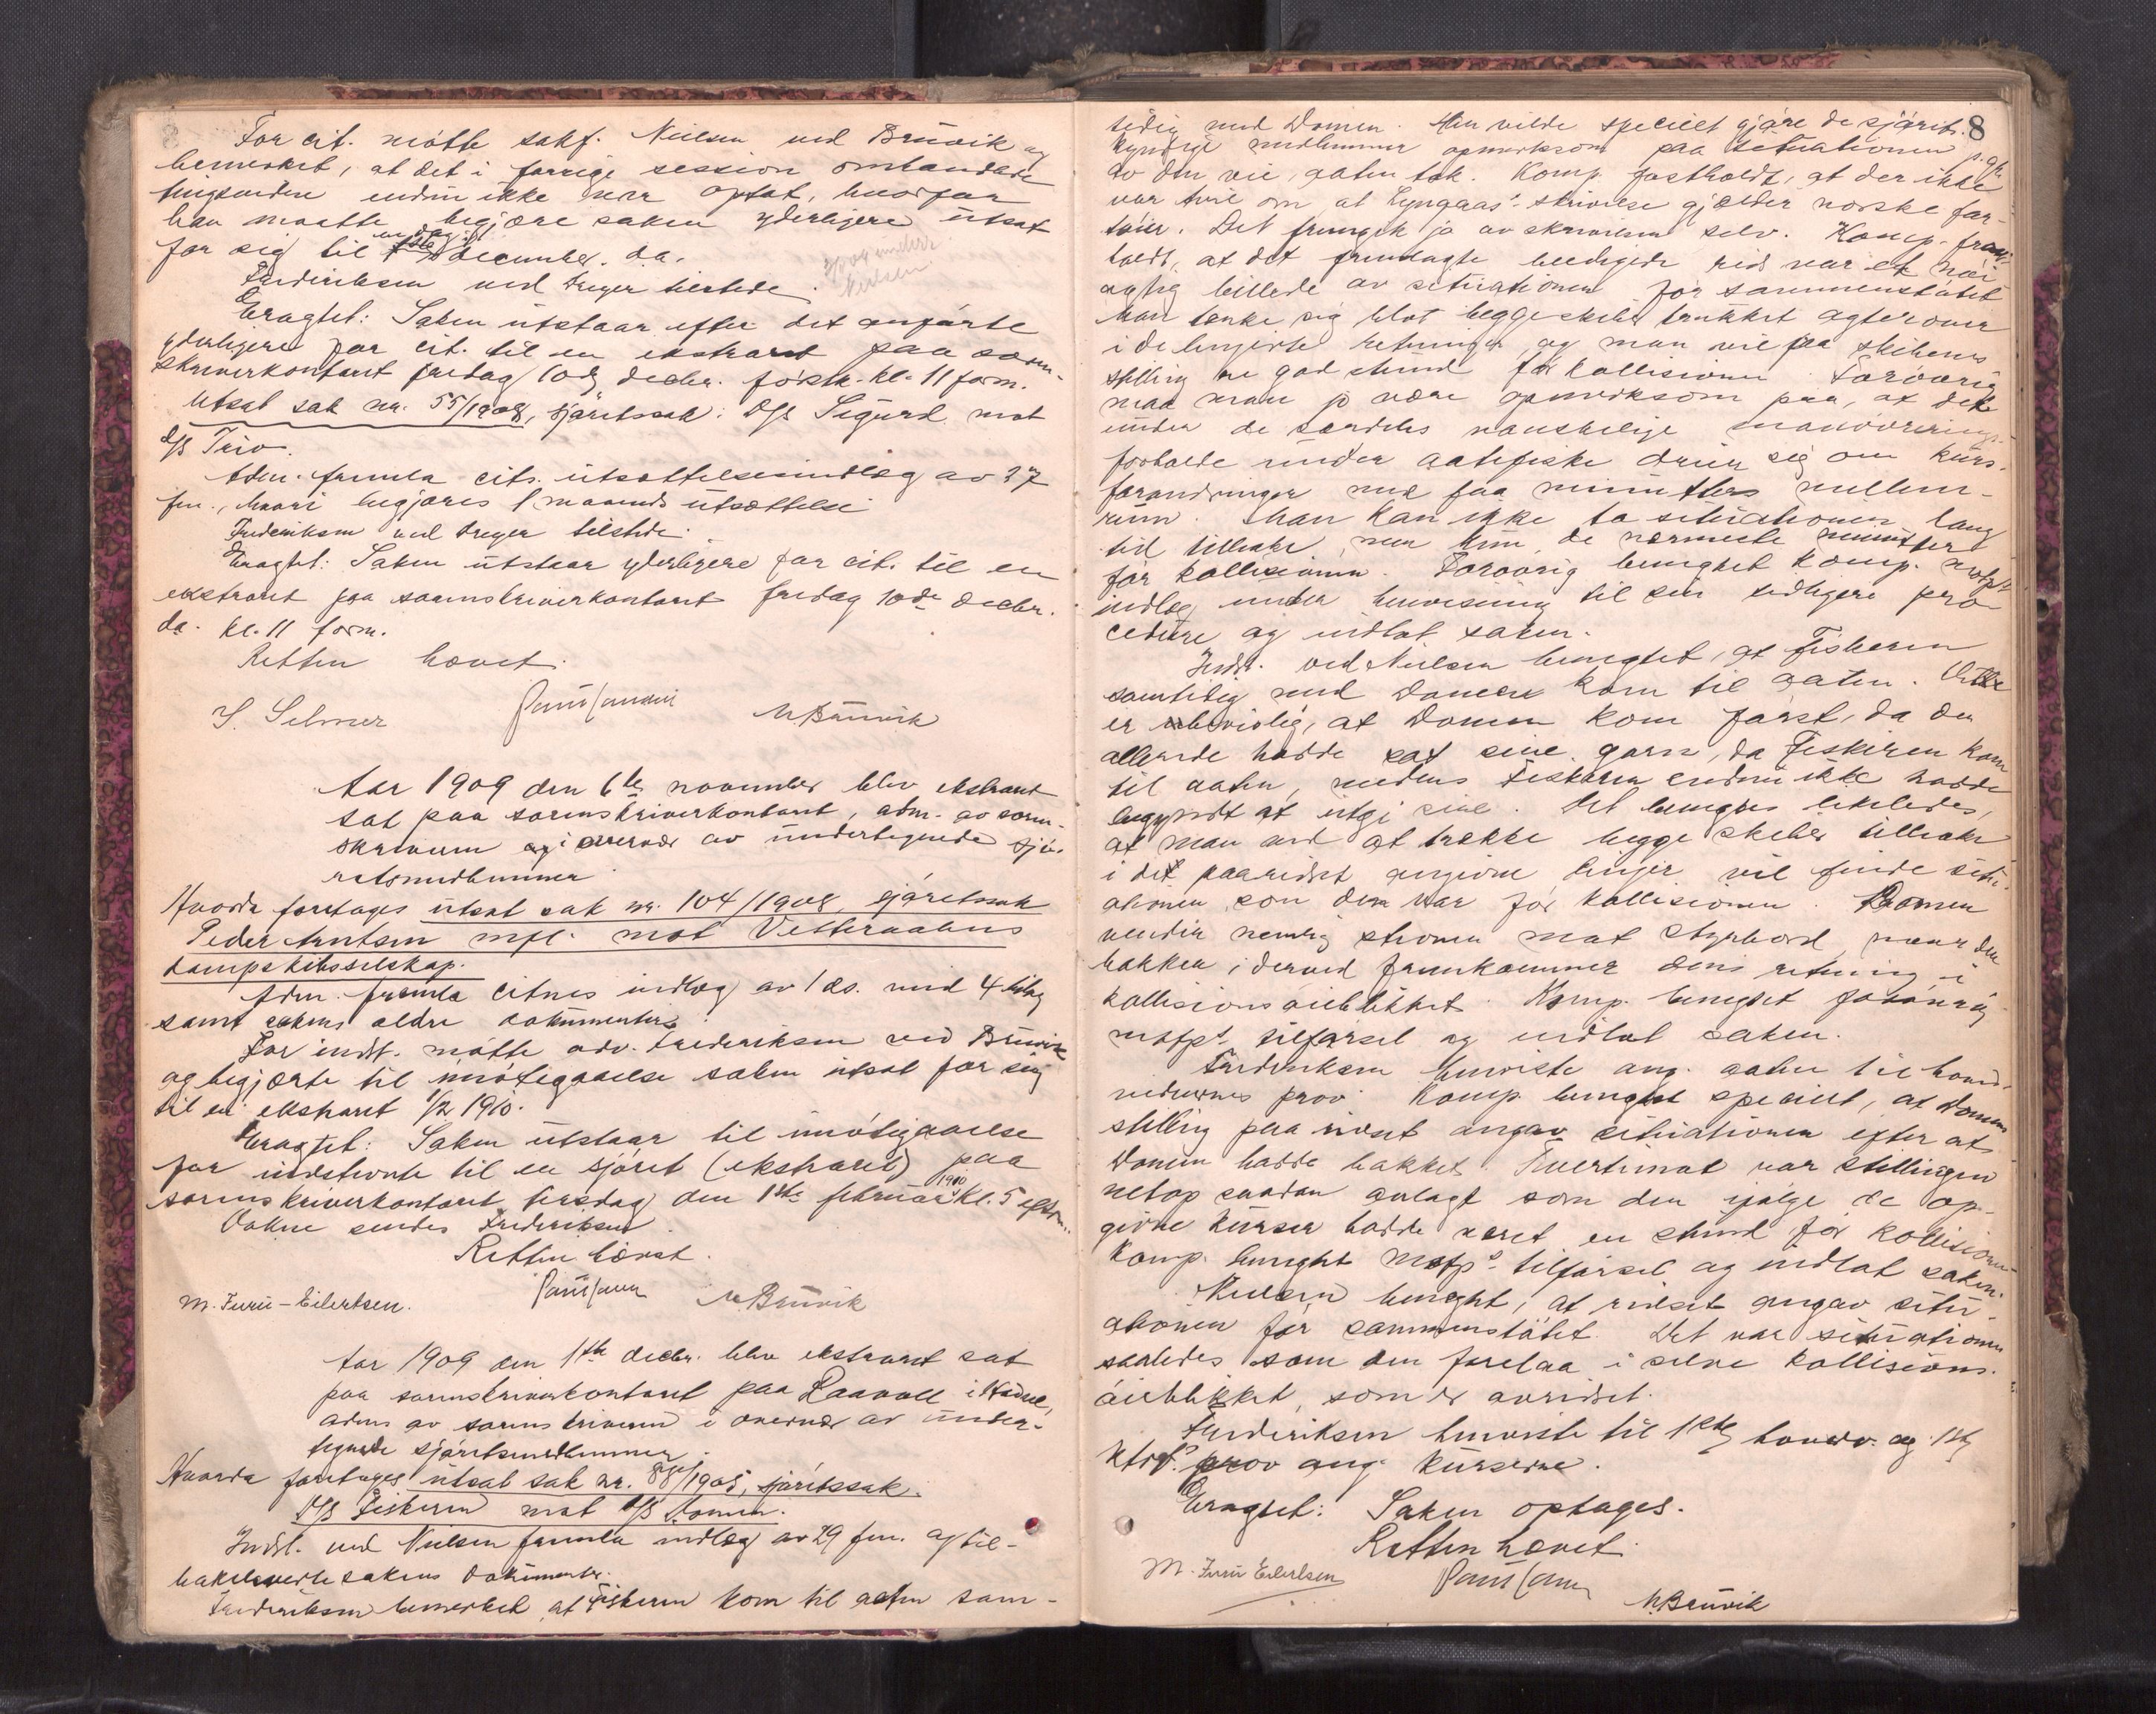 For cit. møtte sakf. Nielsen ved Brüvik og
bemerket, at det i forrige session omhandlede
tingsvidne endnu ikke var optat, hvorfor
han maatte begjære saken yderligere utsat
for sig til december d.a.
Frederiksen ved Dreyer tilstede.
Eragtet: Saken utstaar efter det anførte
yderligere for cit. til en ekstraret paa soren-
skriverkontoret fredag 10de decbr. førstk. kl. 11 form.
Utsat sak nr. 55/1908, sjøretssak: D/S Sigurd mot
d/s Trio.
Adm. fremla cits. utsættelsesindlæg av 27
fm., hvori begjæres 1 maaneds utsættelse
Frederiksen ved Dreyer tilstede.
Eragtet: Saken utstaar yderligere for cit. til en
ekstraret paa sorenskriverkontoret fredag 10de decbr.
d.a. kl. 11 form.
Retten hævet.
S. Selmer
M Brüvik
Aar 1909 den 6te november blev ekstraret
sat paa sorenskriverkontoret, adm. av soren-
skriveren og i overvær av undertegnede sjø-
retsmedlemmer
Hvorda foretages utsat sak nr. 104/1908, sjøretssak
Peder Arntsen mfl. mot Vesteraalens
dampskibsselskap.
Adm. fremla citnes indlæg av 1 ds. med 4 bilag
samt sakens ældre dokumenter.
For indst. møtte adv. Frederiksen ved Brüvik
og begjærte til imøtegaaelse saken utsat for sig
til en ekstraret 1/2 1910.
Eragtet: Saken utstaar til imøtegaaelse
for indstevnte til en sjøret (ekstraret) paa
sorenskriverkontoret tirsdag den 1ste februar 1910 kl. 5 eftm.
Dokne sendes Frederiksen.
Retten hævet.
M. Furu-Eilertsen.
M Brüvik
Aar 1909 den 1ste decbr. blev ekstraret sat
paa sorenskriverkontoret paa Raavoll i Hadsel,
adm. av sorenskriveren i overvær av under-
tegnede sjøretsmedlemmer.
Hvorda foretages utsat sak nr. 88/1908, sjøretssak.
D/S Fiskeren mot d/s Domen.
Indst. ved Nielsen fremla indlæg av 29 fm. og til-
bakeleverte sakens dokumenter.
Frederiksen bemerket at Fiskeren kom til aaten sam-
8
tidig med Domen. Han vilde specielt gjøre de sjørets-
kyndige medlemmer opmerksom paa situationen
av den vei, aaten tok. Komp. fastholdt, at der ikke
var tvil om at Lyngaas' skrivelse gjælder norske far-
tøier. Det fremgik jo av skrivelsen selv. Komp. frem-
holdt, at det fremlagte beedigede rids var et nøi-
agtig billede av situationen før sammenstøtet
Man tænke sig blot begge skibe trukket agterover
i de længste retninger, og man vil faa skibenes
stilling en god stund før kollisionen. Forøvrig
maa man jo være opmerksom paa, at det
under de særdeles vanskelige manøvrerings-
forholde under aatefiske dreier sig om kurs-
forandringer med faa minutters mellem-
rum. Man kan ikke ta situationen lang
tid tilbake, men kun de nærmeste minutter
før kollisionen. Forøvrig benegtet komp. motpts
indlæg under henvisning til sin tidligere pro-
cedure og indlot saken.
Indst. ved Nielsen benegtet, at Fiskeren
samtidig med Domen kom til aaten. Dette
er ubevislig, at Domen kom først, da den
allerede hadde sat sine garn, da Fiskeren kom
til aaten, medens Fiskeren endnu ikke hadde
begyndt at utgi sine. Det benegtes likeledes,
at man ved at trække begge skibe tilbake
i det paaridset angivne linjer vil finde situ-
ationen som den var før kollisionen. Domen
vender nemlig stevnen mot styrbord, naar den
bakker, i derved fremkommer dens retning i
kollisionsøieblikket. Komp. benegtet forøvrig
motpts tilførsel og indlot saken.
Frederiksen henviste ang. aaten til hoved-
vidnernes prov. Komp. benegtet specielt, at Domens
stilling paa ridset angav situationen efter at
Domen hadde bakket. Tvertimot var stillingen
netop saadan anlagt som den ifølge de op-
givne kurser hadde været en stund før kollisionen
Komp. benegtet motpts tilførsel og indlot saken.
Nielsen benegtet, at ridset angav situ-
ationen før sammenstøtet. Det var situationen
saaledes som den forelaa i selve kollisions-
øieblikket, som er avridset.
Frederiksen henviste til 1ste hovedv. og 1ste
prov ang. kurserne.
Eragtet: Saken optages.
Retten hævet.
M. Furu Eilertsen
M. Brüvik